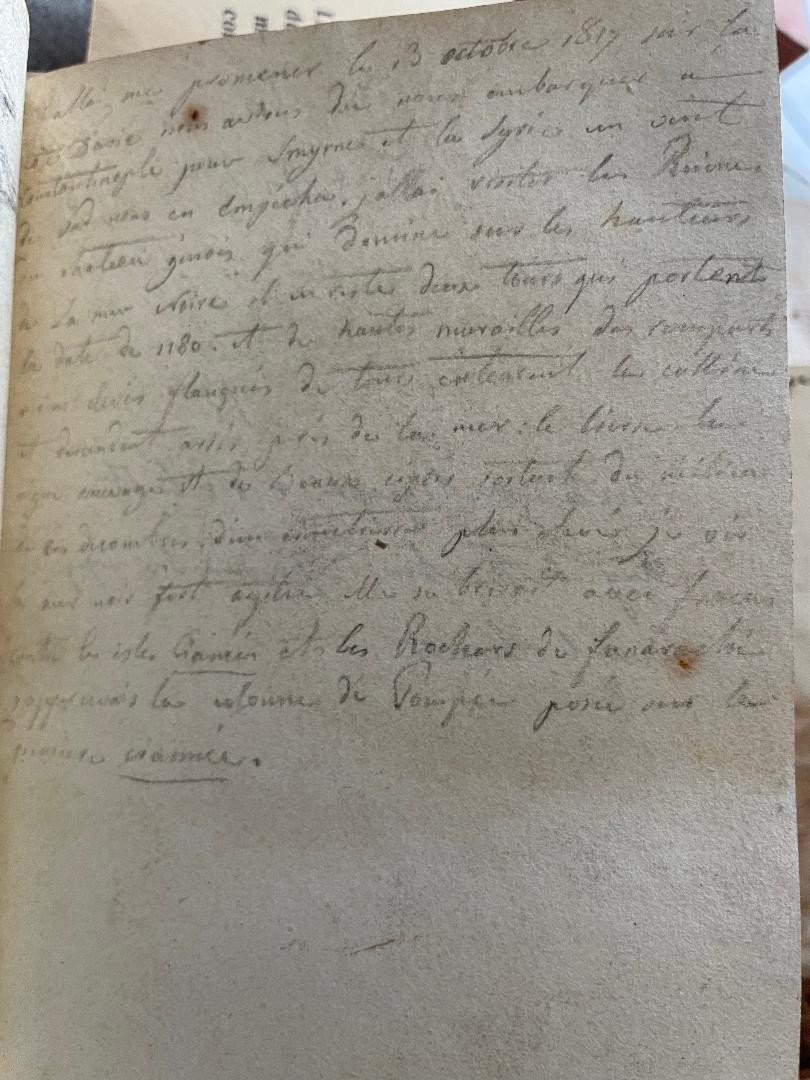 allai me promener le 13 octobre 1817 sur la
d'asie nous avions du nous embarquer a
Constantinople pour Smyrne et la Syrie un vent
du sud nous en empécha. j'allai visiter les Ruines
du chateau génois qui domine sur les hauteurs
de la mer Noire il en reste deux tours qui portent
la date de 1180. et de hautes murailles des remparts
élevés flanqués de tours entourent la colline
et descendent assés près de la mer: le lierre la
vigne sauvage et de beaux sortent du milieu
de ces decombres. d'un plus élevé je vis
la mer noir fort agitée Elle se brisoit avec fracas
contre les isles Cianées et les Rochers de
j'appercevais la colonne de Pompée posée sur la
première ciannée.